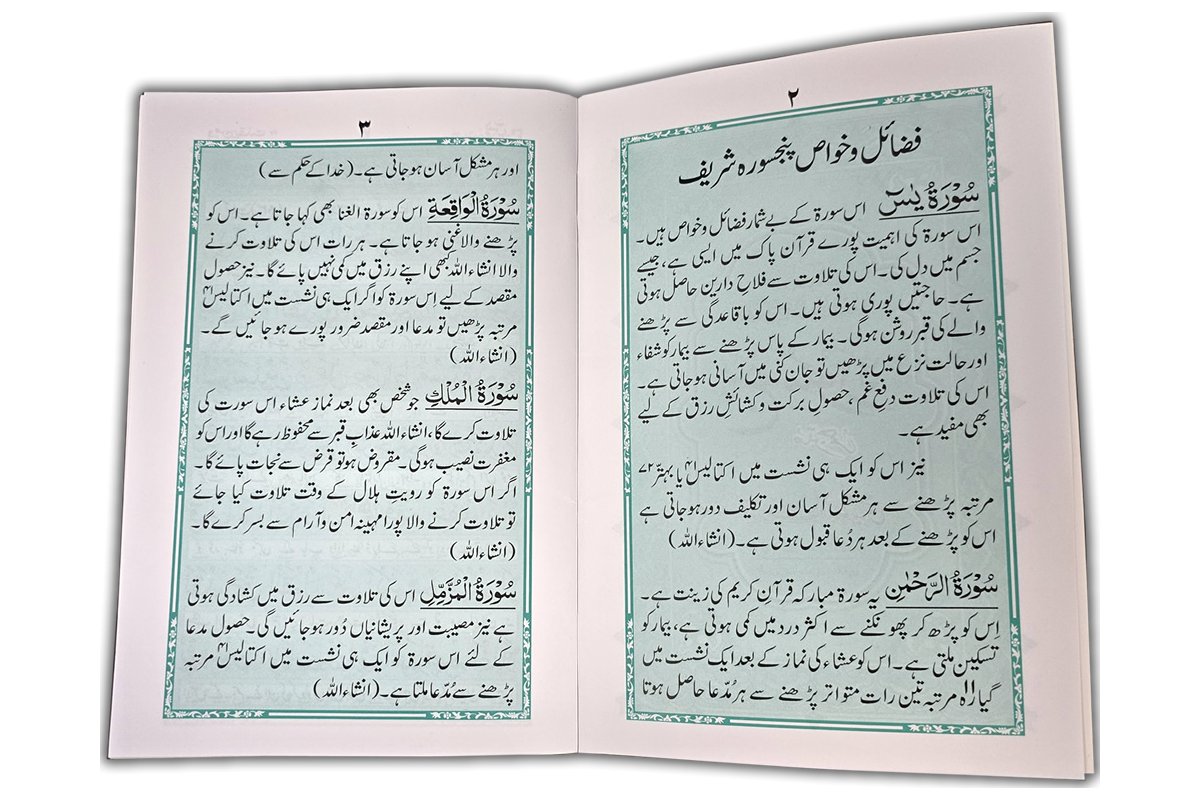 ۲
فضائل و خواص پنجسورہ شریف
سُوْرَةُ یٰسٓ اس سورۃ کے بے شمار فضائل و خواص ہیں۔
اس سورۃ کی اہمیت پورے قرآن پاک میں ایسی ہے، جیسے
جسم میں دل کی۔ اس کی تلاوت سے فلاحِ دارین حاصل ہوتی
ہے۔ حاجتیں پوری ہوتی ہیں۔ اس کو باقاعدگی سے پڑھنے
والے کی قبر روشن ہوگی۔ بیمار کے پاس پڑھنے سے بیمار کو شفاء
اور حالت نزع میں پڑھیں تو جان کنی میں آسانی ہوجاتی ہے۔
اس کی تلاوت دفعِ غم، حصولِ برکت و کشائشِ رزق کے لیے
بھی مفید ہے۔
نیز اس کو ایک ہی نشست میں اکتالیس۴۱ یا بہتر ۷۲
مرتبہ پڑھنے سے ہر مشکل آسان اور تکلیف دور ہوجاتی ہے
اس کو پڑھنے کے بعد ہر دُعا قبول ہوتی ہے۔ (انشاء اللہ)
سُوْرَةُ الرَّحْمٰنِ یہ سورۃ مبارکہ قرآنِ کریم کی زینت ہے۔
اِس کو پڑھ کر پھونکنے سے اکثر درد میں کمی ہوتی ہے، بیمار کو
تسکین ملتی ہے۔ اس کو عشاء کی نماز کے بعد ایک نشست میں
گیارہ۱۱ مرتبہ تین رات متواتر پڑھنے سے ہر مُدّعا حاصل ہوتا
۳
اور ہر مشکل آسان ہوجاتی ہے۔ (خدا کے حکم سے)
سُوْرَةُ الْوَاقِعَةِ اس کو سورۃ الغنا بھی کہا جاتا ہے۔ اس کو
پڑھنے والا غنی ہوجاتا ہے۔ ہر رات اس کی تلاوت کرنے
والا انشاء اللہ بھی اپنے رزق میں کمی نہیں پائے گا۔ نیز حصول
مقصد کے لیے اِس سورۃ کو اگر ایک ہی نشست میں اکتالیس۴۱
مرتبہ پڑھیں تو مدعا اور مقصد ضرور پورے ہوجائیں گے۔
(انشاء اللہ)
سُوْرَةُ الْمُلْكِ جو شخص بھی بعد نماز عشاء اس سورت کی
تلاوت کرے گا، انشاء اللہ عذابِ قبر سے محفوظ رہے گا اور اس کو
مغفرت نصیب ہوگی۔ مقروض ہو تو قرض سے نجات پائے گا۔
اگر اس سورۃ کو رویتِ ہلال کے وقت تلاوت کیا جائے
تو تلاوت کرنے والا پورا مہینہ امن و آرام سے بسر کرے گا۔
(انشاء اللہ)
سُوْرَةُ الْمُزَّمِّلِ اس کی تلاوت سے رزق میں کشادگی ہوتی
ہے نیز مصیبت اور پریشانیاں دُور ہوجائیں گی۔ حصول مدعا
کے لئے اس سورۃ کو ایک ہی نشست میں اکتالیس۴۱ مرتبہ
پڑھنے سے مُدّعا ملتا ہے۔ (انشاء اللہ)